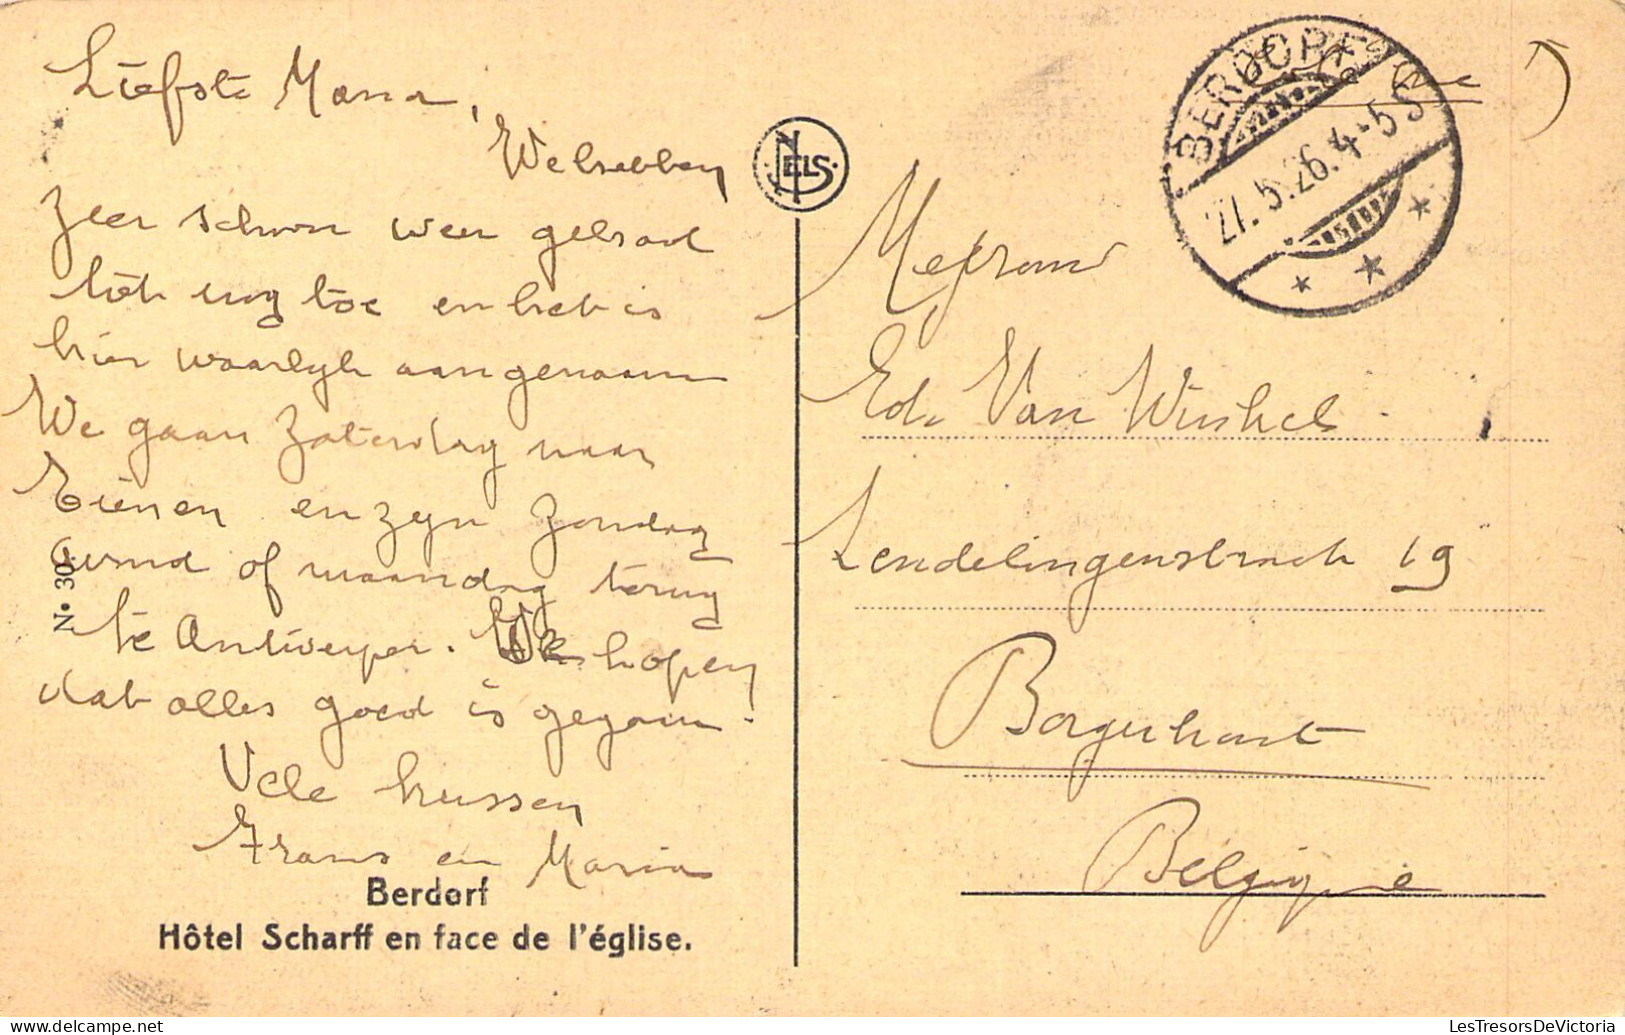 Liefste Mama,
We hebben
zeer schoon weer gehad
tot nog toe en het is
hier waarlyk aangenaam
We gaan Zaterdag naar
Tienen en zyn Zondag
avond of maandag terug
te Antwerpen. We hopen
dat alles goed is gegaan.
Vele kussen
Frans en Maria
Berdorf
Hôtel Scharff en face de l'église.
N° 30.
NELS
BERDORF
27.5.26.4-5 S
Mefrouw
Ed. Van Winkel
Lendelingenstraat 19
Borgerhout
Belgique
LesTresorsDeVictoria